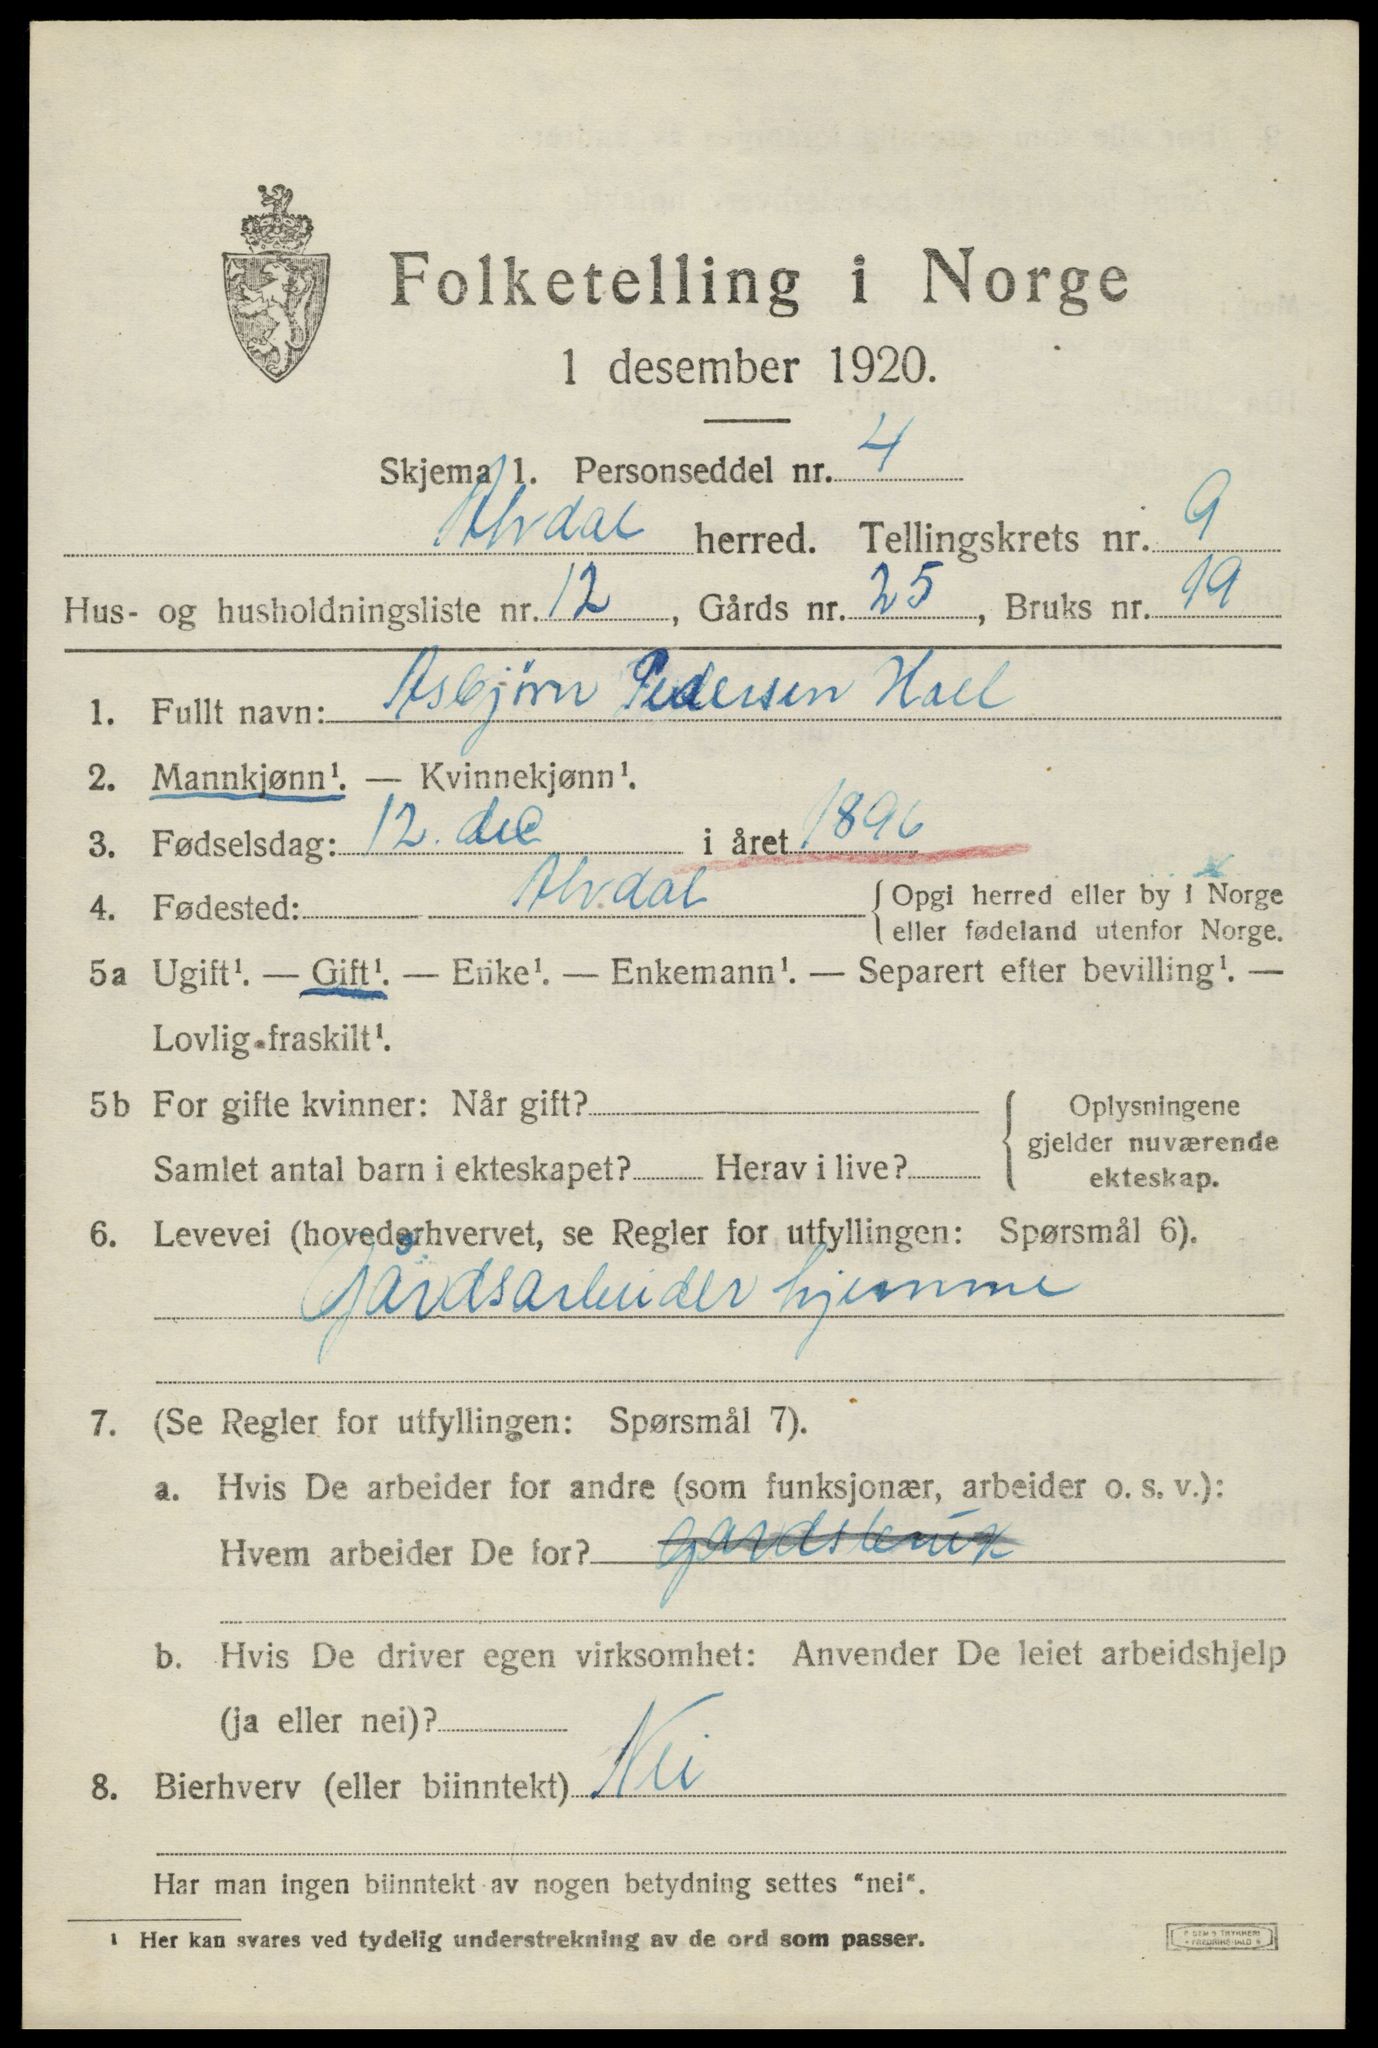 Folketelling i Norge
1 desember 1920.
Skjema 1. Personseddel nr. 4
Alvdal herred. Tellingskrets nr. 9
Hus- og husholdningsliste nr. 12, Gårds nr. 25, Bruks nr. 19
1. Fullt navn: Asbjørn Pedersen Hoel
2. Mannkjønn¹. — Kvinnekjønn¹.
3. Fødselsdag: 12. dec i året 1896
4. Fødested: Alvdal { Opgi herred eller by i Norge
eller fødeland utenfor Norge.
5a Ugift¹. — Gift¹. — Enke¹. — Enkemann¹. — Separert efter bevilling¹. —
Lovlig fraskilt¹.
5b For gifte kvinner: Når gift? { Oplysningene
gjelder nuværende
Samlet antal barn i ekteskapet? Herav i live? ekteskap.
6. Levevei (hovederhvervet, se Regler for utfyllingen: Spørsmål 6).
Gårdsarbeider hjemme
7. (Se Regler for utfyllingen: Spørsmål 7).
a. Hvis De arbeider for andre (som funksjonær, arbeider o. s. v.):
Hvem arbeider De for? gardsbruk
b. Hvis De driver egen virksomhet: Anvender De leiet arbeidshjelp
(ja eller nei)?
8. Bierhverv (eller biinntekt) Nei
Har man ingen biinntekt av nogen betydning settes "nei".
¹ Her kan svares ved tydelig understrekning av de ord som passer.